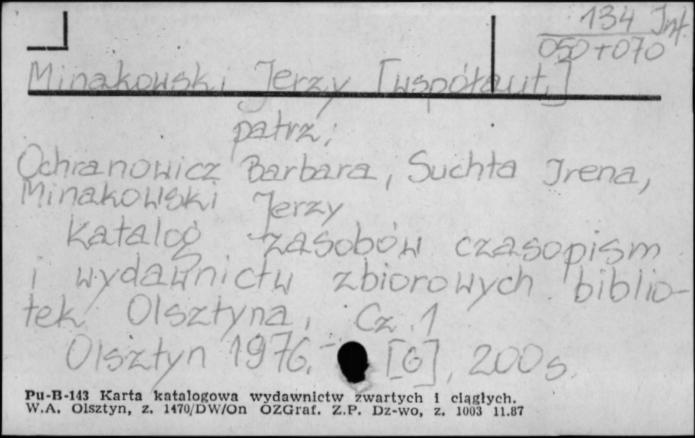 134 Inf.
050+070
Minakowski Jerzy [współaut.]
patrz:
Ochranowicz Barbara, Suchta Irena,
Minakowski Jerzy
Katalog zasobów czasopism
i wydawnictw zbiorowych biblio-
tek Olsztyna. Cz. 1
Olsztyn 1976. - [6], 200 s.
Pu-B-143 Karta katalogowa wydawnictw zwartych i ciągłych.
W.A. Olsztyn, z. 1470/DW/On OZGraf. Z.P. Dz-wo, z. 1003 11.87